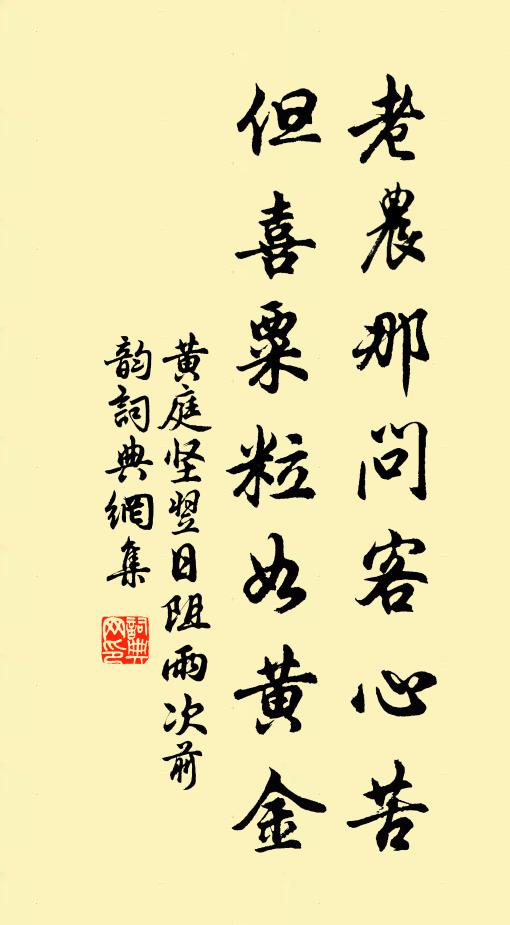 老農那问客心苦
但喜粟粒如黄金
黄庭坚翌日阻雨次前
韵詞典網集
詞典
网印